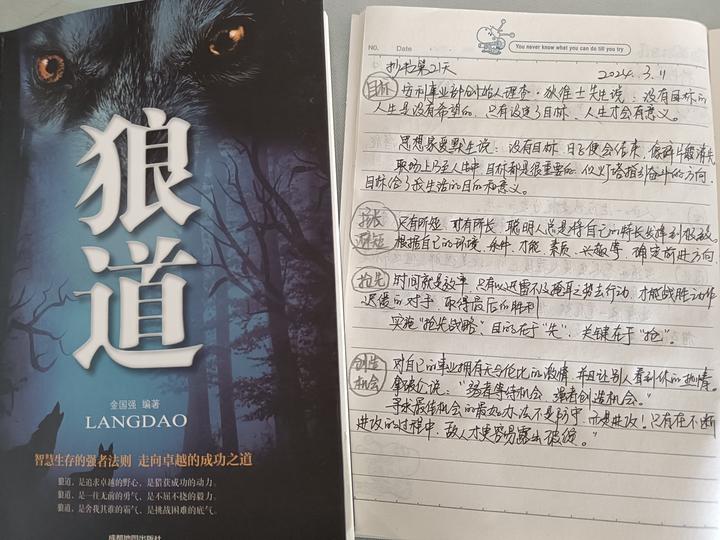 狼
道
金国强 编著
LANGDAO
智慧生存的强者法则 走向卓越的成功之道
狼道，是追求卓越的野心，是猎获成功的动力。
狼道，是一往无前的勇气，是不屈不挠的毅力。
狼道，是舍我其谁的霸气，是挑战困难的底气。
成都地图出版社
NO.
Date
You never know what you can do till you try
抄书第21天
2024.3.11
目标
事业部创始人理查·狄维士先生说：没有目标的
人生是没有希望的，只有设定了目标，人生才会有意义。
思想家爱默生说：没有目标，日子便会结束，像碎片般消失
职场上乃至人生中，目标都是很重要的，似灯塔指引奋斗的方向，
目标给了我生活的目的和意义。
扬长
避短
只有所短，才有所长，聪明人总是将自己的特长发挥到极致。
根据自己的环境、条件、才能、素质、兴趣等，确定前进方向。
抢先
时间就是效率，只有以迅雷不及掩耳之势去行动，才能战胜动作
迟缓的对手，取得最后的胜利
实施“抢先战略”，目的在于“先”，关键在于“抢”。
创造
机会
对自己的事业拥有无与伦比的激情，并且让别人看到你的热情。
说：“弱者等待机会，强者创造机会。”
寻求最佳机会的最好办法不是防守，而是进攻！只有在不断
进攻的过程中，敌人才更容易露出破绽。”